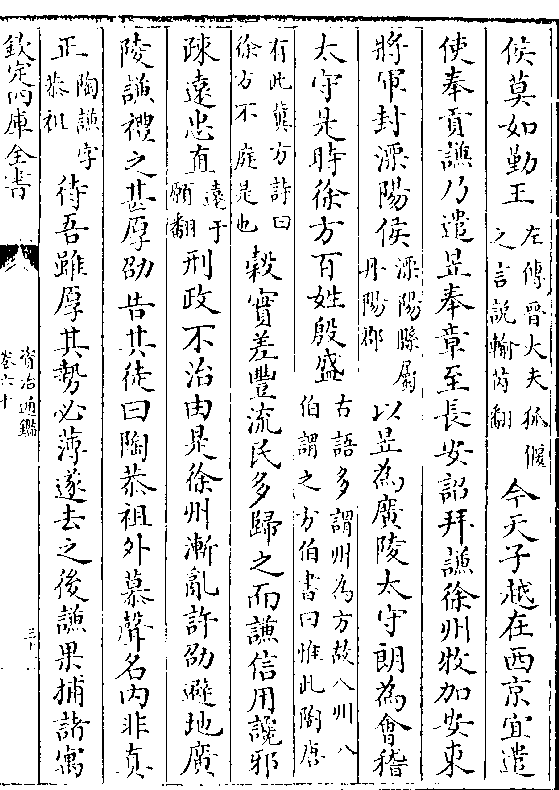 侯莫如勤王左傳晉大夫狐偃之言說輸芮翻今天子越在西京宜遣
使奉貢謙乃遣昱奉章至長安詔拜謙徐州牧加安東
將軍封溧陽侯溧陽縣屬丹陽郡以昱為廣陵太守朗為會稽
太守是時徐方百姓殷盛古語多謂州為方故八州八伯謂之方伯書曰惟此陶唐
有此冀方詩曰徐方不庭是也穀實差豐流民多歸之而謙信用讒邪
疎遠忠直遠于願翻刑政不治由是徐州漸亂許劭避地廣
陵謙禮之甚厚劭告其徒曰陶恭祖外慕聲名內非真
正陶謙字恭祖待吾雖厚其勢必薄遂去之後謙果捕諸寓
欽定四庫全書
資治通鑑
卷六十